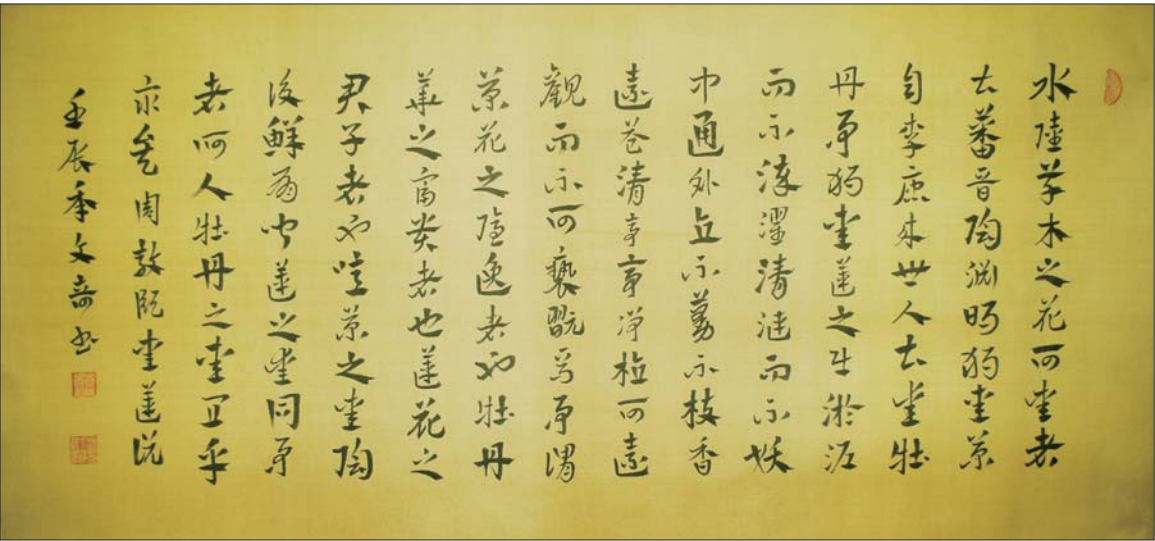 水陸草木之花可愛者
甚蕃晉陶渊明獨愛菊
自李唐来世人甚愛牡
丹予獨愛蓮之出淤泥
而不染濯清漣而不妖
中通外直不蔓不枝香
遠益清亭亭淨植可遠
觀而不可褻翫焉予謂
菊花之隱逸者也牡丹
華之富貴者也蓮花之
君子者也噫菊之愛陶
後鮮有聞蓮之愛同予
者何人牡丹之愛宜乎
衆矣周敦頤愛蓮說
壬辰季文奇书